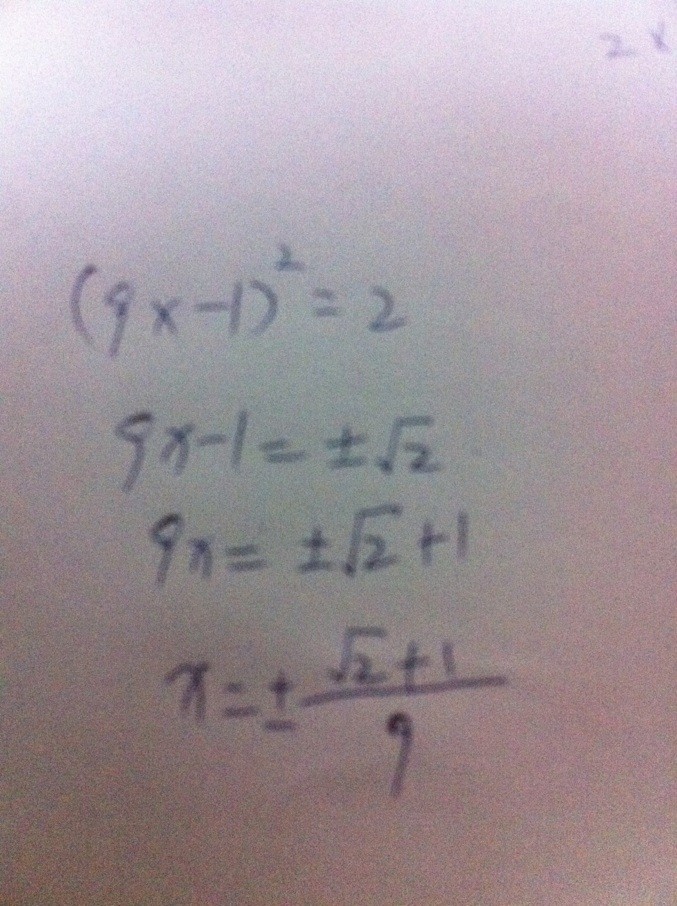 2x
(9x-1)² = 2
9x-1 = ±√2
9x = ±√2+1
x = ± (√2+1)/9